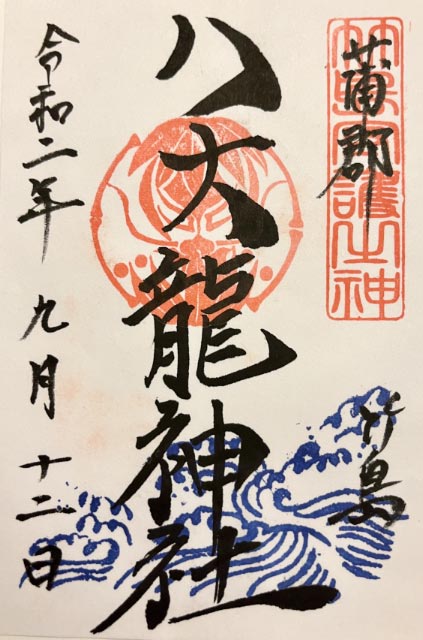 竹島守護之神
蒲郡
竹島
八大龍神社
令和二年 九月 十二日